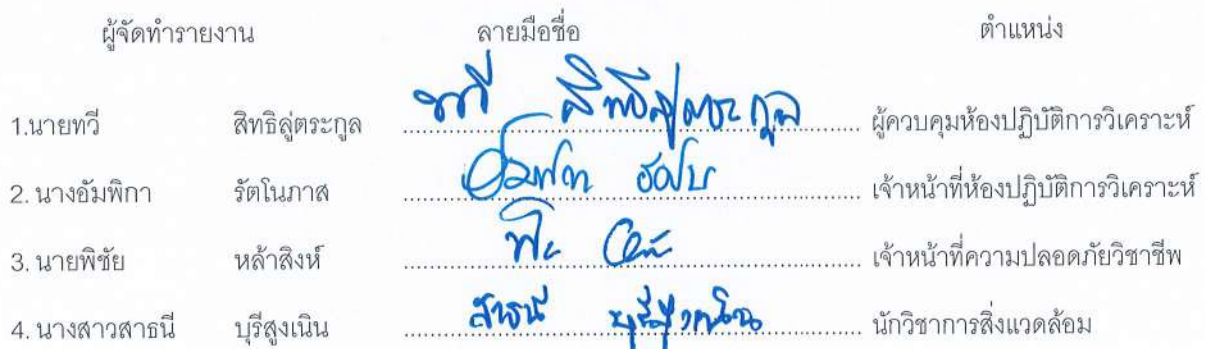 ผู้จัดทำรายงาน ลายมือชื่อ ตำแหน่ง
1.นายทวี สิทธิลู่ตระกูล ทวี สิทธิลู่ตระกูล ผู้ควบคุมห้องปฏิบัติการวิเคราะห์
2. นางอัมพิกา รัตโนภาส เจ้าหน้าที่ห้องปฏิบัติการวิเคราะห์
3. นายพิชัย หล้าสิงห์ เจ้าหน้าที่ความปลอดภัยวิชาชีพ
4. นางสาวสาธนี บุรีสูงเนิน สาธนี บุรีสูงเนิน นักวิชาการสิ่งแวดล้อม